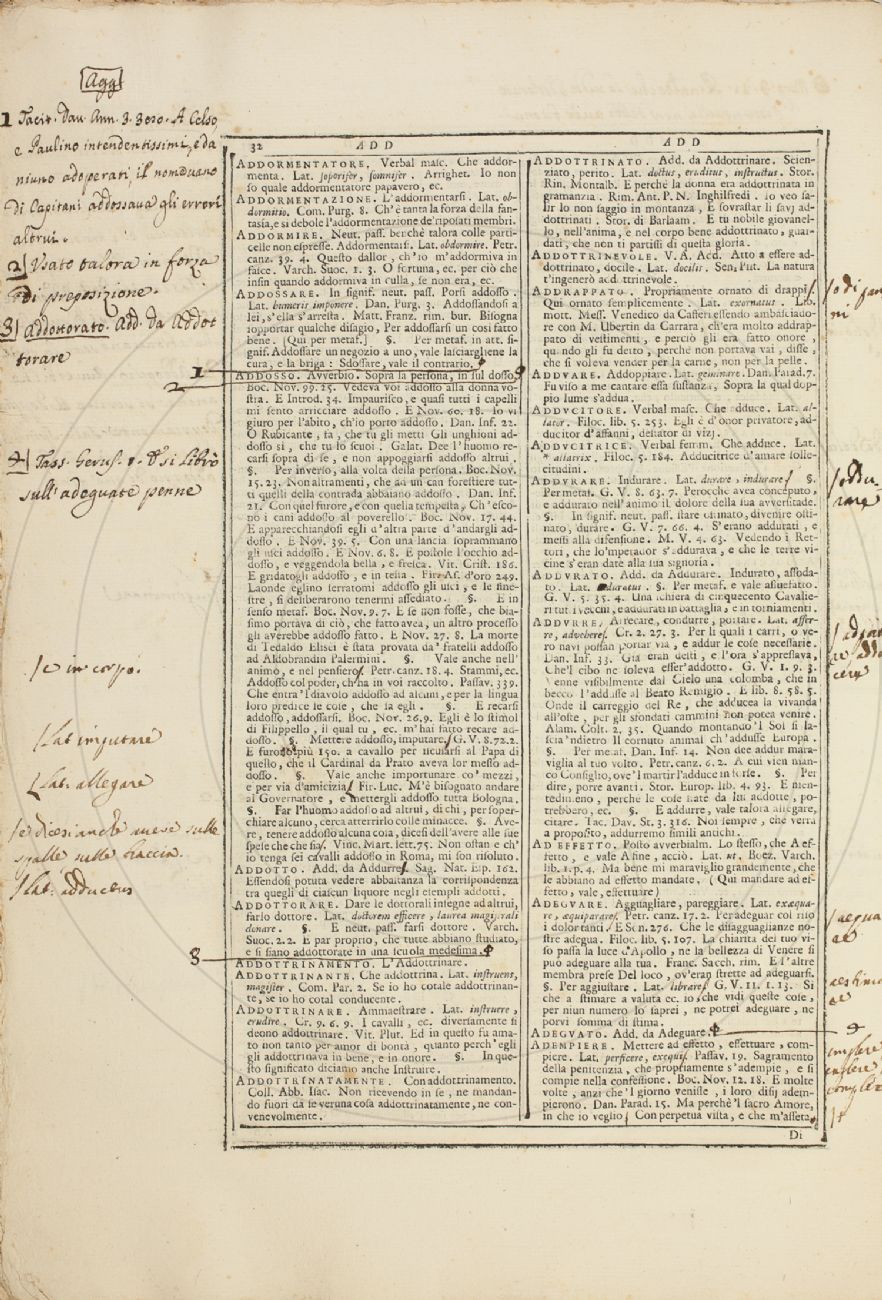 Agg
1 Tacit. Dav. Ann. 3. 3020. A Celso,
e Paulino intendentissimi, e da
niuno adoperati, il nom davano
di Capitani addossava gli errori
altrui.
2 Usato talora in forza
di preposizione.
3 Addottorato. Add. da Addot
torare
4 Tass. Gerus. 1. E si librò
sull'adeguate penne
se in corpo.
Lat. imputare
Lat. allegare
e dicesi anche avere sulle
spalle sulle braccia.
Lat. adducens
32 ADD
ADDORMENTATORE. Verbal masc. Che addor-
menta. Lat. soporifer, somnifer. Arrighet. Io non
so quale addormentatore papavero, ec.
ADDORMENTAZIONE. L'addormentarsi. Lat. ob-
dormitio. Com. Purg. 8. Ch'è tanta la forza della fan-
tasia, e sì debole l'addormentazione de' ripolati membri.
ADDORMIRE. Neut. pass. benchè talora colle parti-
celle non espresse. Addormentarsi. Lat. obdormire. Petr.
canz. 39. 4. Questo dallor, ch'io m'addormiva in
fasce. Varch. Suoc. 1. 3. O fortuna, ec. per ciò che
insin quando addormiva in culla, se non era, ec.
ADDOSSARE. In signif. neut. pass. Porsi addosso.
Lat. humeris imponere. Dan. Purg. 3. Addossandosi a
lei, s'ella s'arresta. Matt. Franz. rim. bur. Bisogna
sopportar qualche disagio, Per addossarsi un così fatto
bene. [Qui per metaf.] §. Per metaf. in att. si-
gnif. Addossare un negozio a uno, vale lasciarghene la
cura, e la briga: Sdossare, vale il contrario.
1
2
ADDOSSO. Avverbio. Sopra la persona, in sul dosso.
Boc. Nov. 99. 25. Vedeva voi addosso alla donna vo-
stra. E Introd. 34. Impaurisco, e quasi tutti i capelli
mi sento arricciare addosso. E Nov. 60. 18. Io vi
giuro per l'abito, ch'io porto addosso. Dan. Inf. 22.
O Rubicante, fa, che tu gli metti Gli unghioni ad-
dosso sì, che tu lo scuoi. Galat. Dee l'huomo re-
carsi sopra di se, e non appoggiarsi addosso altrui.
§. Per inverso, alla volta della persona. Boc. Nov.
15. 23. Non altramenti, che ad un can forestiere tut-
ti quelli della contrada abbaiano addosso. Dan. Inf.
21. Con quel furore, e con quella tempesta, Ch'esco-
no i cani addosso al poverello. Boc. Nov. 17. 44.
E apparecchiandosi egli d'altra parte d'andargli ad-
dosso. E Nov. 39. 5. Con una lancia sopramano
gli uscì addosso. E Nov. 6. 8. E postole l'occhio ad-
dosso, e veggendola bella, e fresca. Vit. Crist. 186.
E gridatogli addosso, e in testa. Fir. As. d'oro 249.
Laonde eglino serratomi addosso gli usci, e le fine-
stre, sì deliberarono tenermi assediato. §. E in
senso metaf. Boc. Nov. 9. 7. E se non fosse, che bia-
simo portava di ciò, che fatto avea, un altro processo
gli averebbe addosso fatto. E Nov. 27. 8. La morte
di Tedaldo Elisei è stata provata da' fratelli addosso
ad Aldobrandin Palermini. §. Vale anche nell'
animo, e nel pensiero. Petr. canz. 18. 4. Stammi, ec.
Addosso col poder, ch'ha in voi raccolto. Passav. 339.
Che entra'l diavolo addosso ad alcuni, e per la lingua
loro predice le cose, che sa egli. §. E recarsi
addosso, addossarsi. Boc. Nov. 26. 9. Egli è lo stimol
di Filippello, il qual tu, ec. m'hai fatto recare ad-
dosso. §. Mettere addosso, imputare. G. V. 8. 72. 2.
E furono più 150. a cavallo per scusarsi al Papa di
quello, che il Cardinal da Prato aveva lor messo ad-
dosso. §. Vale anche importunare co' mezzi,
e per via d'amicizia. Fir. Luc. M'è bisognato andare
al Governatore, e mettergli addosso tutta Bologna.
§. Far l'huomo addosso ad altrui, di chi, per soper-
chiare alcuno, cerca atterrirlo colle minacce. §. Ave-
re, tenere addosso alcuna cosa, dicesi dell'avere alle sue
spese che che sia. Vinc. Mart. lett. 75. Non ostan e ch'
io tenga sei cavalli addosso in Roma, mi son risoluto.
ADDOTTO. Add. da Addurre. Sag. Nat. Esp. 162.
Essendosi potuta vedere abbastanza la corrispondenza
tra quegli di ciascun liquore negli esempli addotti.
ADDOTTORARE. Dare le dottorali insegne ad altrui,
farlo dottore. Lat. doctorem efficere, laurea magistrali
donare. §. E neut. pass. farsi dottore. Varch.
Suoc. 2. 2. E par proprio, che tutte abbiano studiato,
e si siano addottorate in una scuola medesima.
3
ADDOTTRINAMENTO. L'Addottrinare.
ADDOTTRINANTE. Che addottrina. Lat. instruens,
magister. Com. Par. 2. Se io ho cotale addottrinan-
te, se io ho cotal conducente.
ADDOTTRINARE. Ammaestrare. Lat. instruere,
erudire. Cr. 9. 6. 9. I cavalli, ec. diversamente si
deono addottrinare. Vit. Plut. Ed in questo fu ama-
to non tanto per amor di bontà, quanto perch'egli
gli addottrinava in bene, e in onore. §. In que-
sto significato diciamo anche Instruire.
ADDOTTRINATAMENTE. Con addottrinamento.
Coll. Abb. Isac. Non ricevendo in se, ne mandan-
do fuori da se veruna cosa addottrinatamente, ne con-
venevolmente.
ADD
ADDOTTRINATO. Add. da Addottrinare. Scien-
ziato, perito. Lat. doctus, eruditus, instructus. Stor.
Rin. Montalb. E perchè la donna era addottrinata in
gramanzia. Rim. Ant. P. N. Inghilfredi. Io veo sa-
lir lo non saggio in montanza, E sovrastar li savj ad-
dottrinati. Stor. di Barlaam. E tu nobile giovanel-
lo, nell'anima, e nel corpo bene addottrinato, guar-
dati, che non ti partissi di questa gloria.
ADDOTTRINEVOLE. V. A. Add. Atto a essere ad-
dottrinato, docile. Lat. docilis. Sen. Pist. La natura
t'ingenerò addottrinevole.
ADDRAPPATO. Propriamente ornato di drappi.
Qui ornato semplicemente. Lat. exornatus. Lib.
mott. Mess. Venedico da Casseri essendo ambasciado-
re con M. Ubertin da Carrara, ch'era molto addrap-
pato di vestimenti, e perciò gli era fatto onore,
quando gli fu detto, perchè non portava vai, disse,
che si voleva vender per la carne, non per la pelle.
ADDUARE. Addoppiare. Lat. geminare. Dan. Parad. 7.
Fu viso a me cantare essa sustanza, Sopra la qual dop-
pio lume s'addua.
ADDUCITORE. Verbal masc. Che adduce. Lat. al-
lator. Filoc. lib. 5. 253. Egli è d'onor privatore, ad-
ducitor d'affanni, destator di vizj.
ADDUCITRICE. Verbal femm. Che adduce. Lat.
allatrix. Filoc. 5. 184. Adducitrice d'amare solle-
citudini.
ADDURARE. Indurare. Lat. durare, indurare. §.
Per metaf. G. V. 8. 63. 7. Perocchè avea conceputo,
e addurato nell'animo il dolore della sua avversitade.
§. In signif. neut. pass. stare ostinato, divenire osti-
nato, durare. G. V. 7. 66. 4. S'erano addurati, e
messi alla difensione. M. V. 4. 63. Vedendo i Ret-
tori, che lo'mperador s'addurava, e che le terre vi-
cine s'eran date alla sua signoria.
ADDURATO. Add. da Addurare. Indurato, assoda-
to. Lat. duratus. §. Per metaf. e vale assuefatto.
G. V. 5. 35. 4. Una schiera di cinquecento Cavalie-
ri tutti vecchi, e addurati in battaglia, e in torniamenti.
ADDURRE. Arrecare, condurre, portare. Lat. affer-
re, advehere. Cr. 2. 27. 3. Per li quali i carri, o ve-
ro navi possan portar via, e addur le cose necessarie.
Dan. Inf. 33. Già eran desti, e l'ora s'appressava,
Che'l cibo ne soleva esser'addotto. G. V. 1. 9. 3.
Venne visibilmente dal Cielo una colomba, che in
becco l'addusse al Beato Remigio. E lib. 8. 58. 5.
Onde il carreggio del Re, che adducea la vivanda
all'oste, per gli sfondati cammini non potea venire.
Alam. Colt. 2. 35. Quando montando'l Sol si la-
scia'ndietro Il cornuto animal ch'addusse Europa.
§. Per metaf. Dan. Inf. 14. Non dee addur mara-
viglia al tuo volto. Petr. canz. 6. 2. A cui vien man-
co Consiglio, ove'l martir l'adduce in forse. §. Per
dire, porre avanti. Stor. Europ. lib. 4. 93. E nien-
tedimeno, perchè le cose state da lui addotte, po-
trebbero, ec. §. E addurre, vale talora allegare,
citare. Tac. Dav. St. 3. 316. Noi sempre, che verrà
a proposito, addurremo simili antichi.
AD EFFETTO. Posto avverbialm. Lo stesso, che A ef-
fetto, e vale A fine, acciò. Lat. ut. Boez. Varch.
lib. 1. p. 4. Ma bene mi maraviglio grandemente, che
le abbiano ad effetto mandate. (Qui mandare ad ef-
fetto, vale, effettuare)
ADEGUARE. Agguagliare, pareggiare. Lat. exæqua-
re, æquiparare. Petr. canz. 17. 2. Per adeguar col riso
i dolor tanti. E Son. 276. Che le disagguaglianze no-
stre adegua. Filoc. lib. 5. 107. La chiarità dei tuo vi-
so passa la luce d'Apollo, ne la bellezza di Venere si
può adeguare alla tua. Franc. Sacch. rim. E l'altre
membra prese Del loco, ov'eran strette ad adeguarsi.
§. Per aggiustare. Lat. librare. G. V. 11. 1. 13. Si
che a stimare a valuta ec. io, che vidi queste cose,
per niun numero lo saprei, ne potrei adeguare, ne
porvi somma di stima.
ADEGUATO. Add. da Adeguare.
4
ADEMPIERE. Mettere ad effetto, effettuare, com-
piere. Lat. perficere, exequi. Passav. 19. Sagramento
della penitenzia, che propriamente s'adempie, e si
compie nella confessione. Boc. Nov. 12. 18. E molte
volte, anzi che'l giorno venisse, i loro disij adem-
pierono. Dan. Parad. 15. Ma perchè'l sacro Amore,
in che io veglio, Con perpetua vista, e che m'asseta
Di